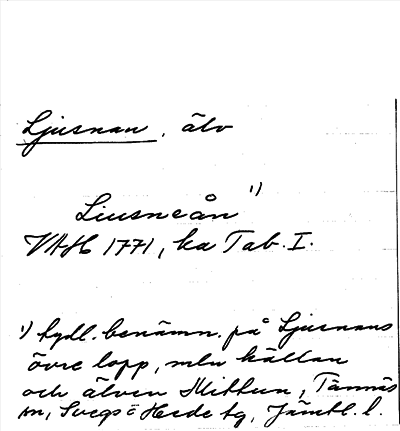 Ljusnan, älv
Liusneån 1)
VAH 1771, ka Tab. I.
1) tydl. benämn. på Ljusnans
övre lopp, mln källan
och älven Mittun, Tännäs
sn, Svegs o Hede tg, Jämtl. l.